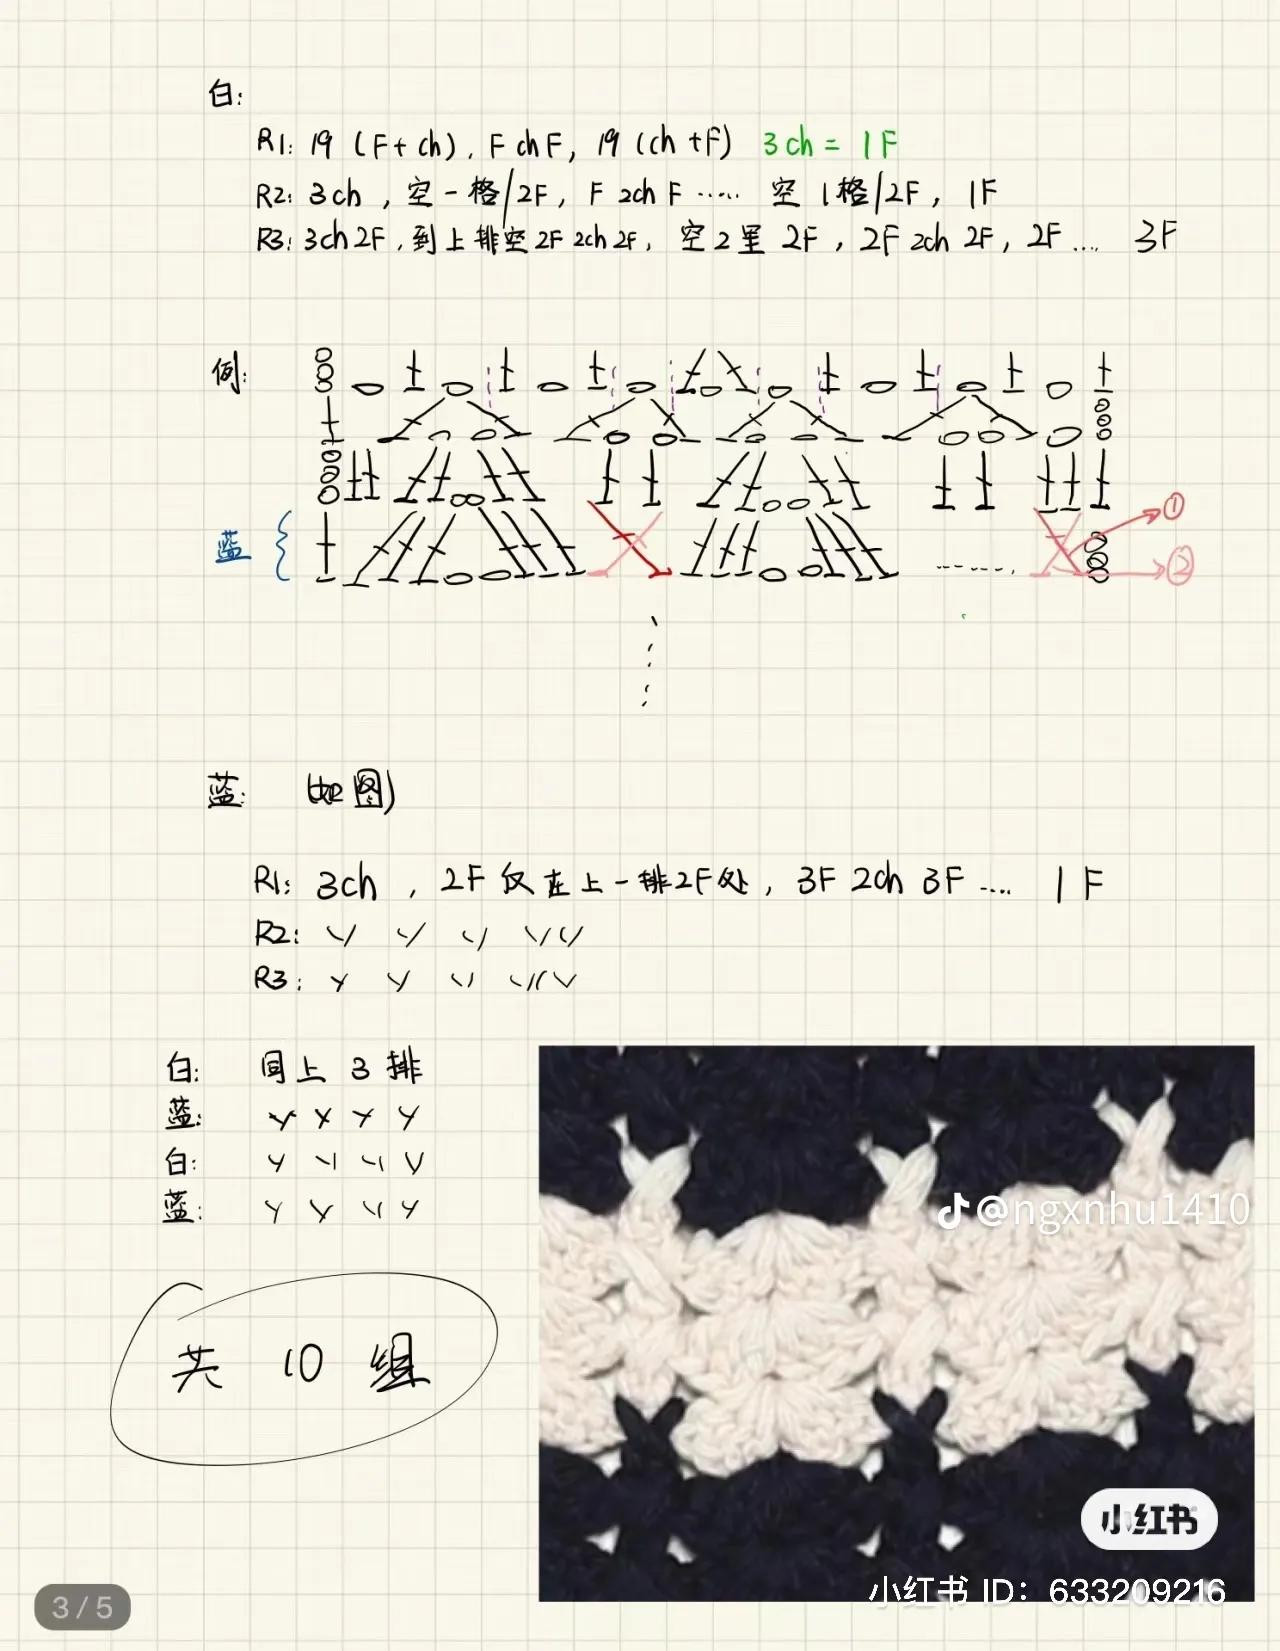 白:
R1: 19 (F+ch), F ch F, 19 (ch+F) 3ch = 1F
R2: 3ch, 空一格/2F, F 2ch F ..... 空1格/2F, 1F
R3: 3ch 2F, 到上排空2F 2ch 2F, 空2里 2F, 2F 2ch 2F, 2F .... 3F
例:
①
蓝
②
蓝: 如图)
R1: 3ch, 2F 仅在上一排2F处, 3F 2ch 3F .... 1F
R2:
R3:
白: 同上3排
蓝:
白:
蓝:
@ngxnhu1410
共10组
小红书
小红书 ID: 633209216
3/5